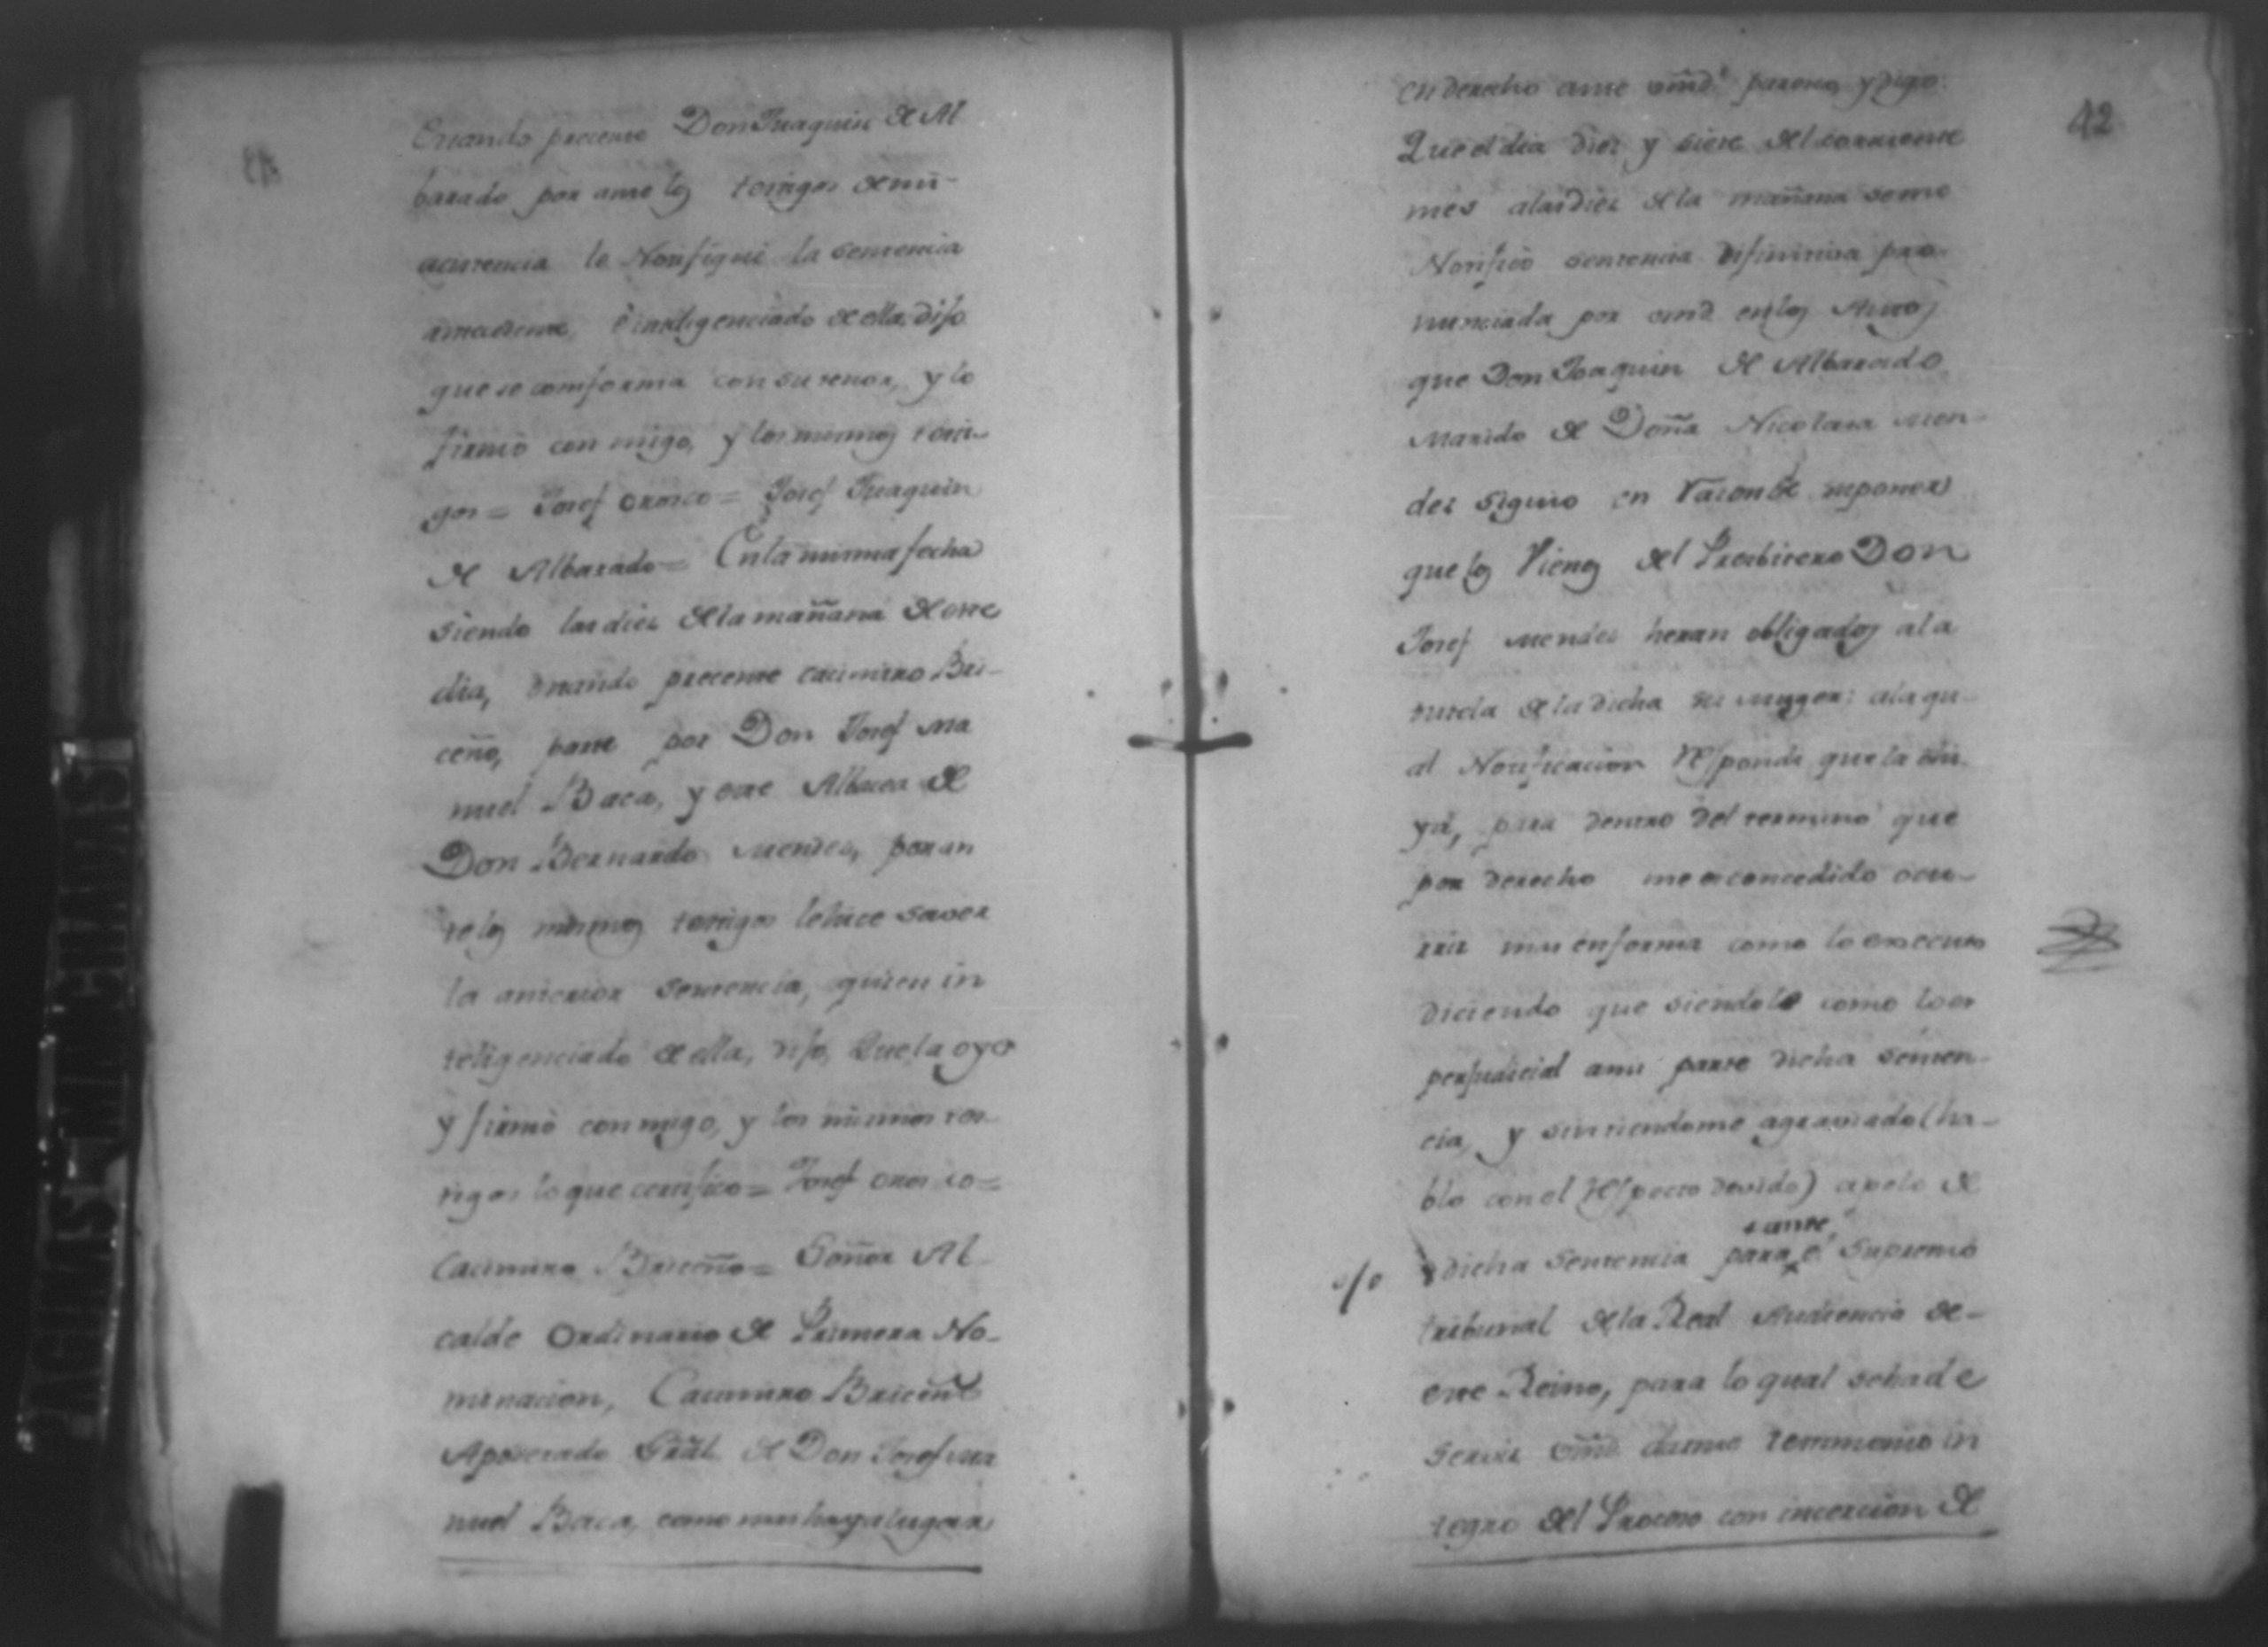 Estando precente Don Juaquin de Al
barado por ante los testigos de mi
acistencia le Notifiqué la sentencia
é inteligenciado de ella, dijo
que se comforma con su tenor, y lo
firmó con migo, y los mismos testi-
gos = Josef Orosco = Josef Juaquin
de Albarado = En la misma fecha
siendo las dies de la mañana de este
dia, estando precente Cacimiro Bri-
ceño, parte por Don Josef Ma
nuel Baca, y este Albacea de
Don Bernardo Mendes, por an
te los mismos testigos le hice saver
la anterior sentencia, quien in
teligenciado de ella, dijo, Que la oye
y firmó con migo, y los mismos tes-
tigos lo que certifico = Josef Orosco =
Cacimiro Briceño = Señor Al
calde Ordinario de Primera No-
minacion, Cacimiro Briceño
Apoderado Grãl. de Don Josef Ma
nuel Baca, como mas haya lugar
42
en derecho ante vmd. paresco, y digo:
Que el dia dies y siete del corriente
mes alas dies de la mañana se me
Notificó sentencia difinitiva pro-
nunciada por vmd. en los Autos
que Don Joaquin de Albarado
Marido de Doña Nicolasa Men-
des siguio en rason de suponer
que los Vienes del Presbitero Don
Josef Mendes heran obligados ala
tutela de la dicha su muger: ala qu-
al Notificacion respondi que la ohi-
ya, para dentro del termino que
por derecho me es concedido ocu-
rrir mas en forma como lo executo
diciendo que siendole como lo es
perjudicial a mi parte dicha senten-
cia, y sintiendome agraviado (ha-
blo con el respecto devido) apelo de
s ante
o/o dicha sentencia para el Supremo
tribunal de la Real Audiencia de-
este Reino, para lo qual se ha de
servir vmd. darme testimonio in
tegro del Proceso con incercion de